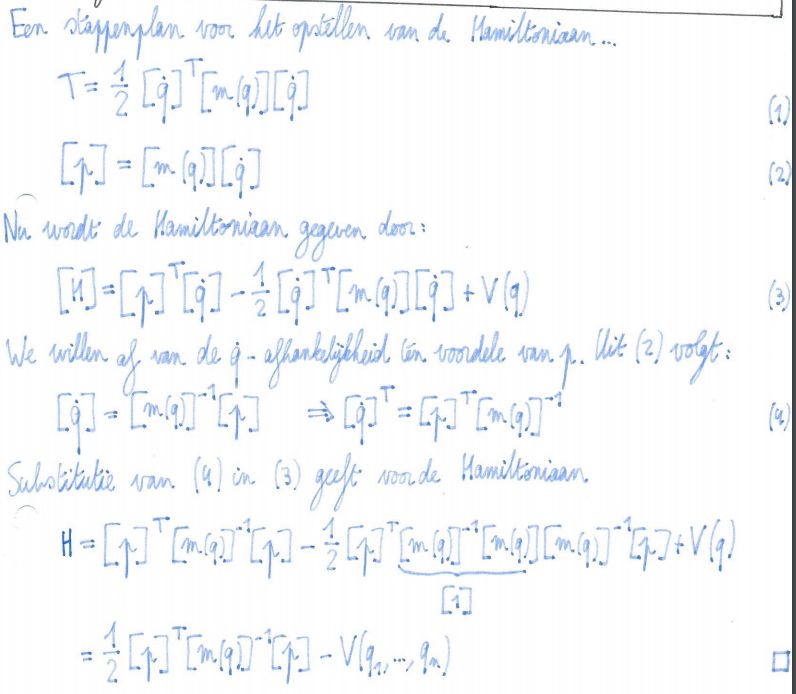 Een stappenplan voor het opstellen van de Hamiltoniaan...
T = 1/2 [q̇]ᵀ[m(q)][q̇] (1)
[p] = [m(q)][q̇] (2)
Nu wordt de Hamiltoniaan gegeven door:
[H] = [p]ᵀ[q̇] - 1/2 [q̇]ᵀ[m(q)][q̇] + V(q) (3)
We willen af van de q̇-afhankelijkheid ten voordele van p. Uit (2) volgt:
[q̇] = [m(q)]⁻¹[p] ⇒ [q̇]ᵀ = [p]ᵀ[m(q)]⁻¹ (4)
Substitutie van (4) in (3) geeft voor de Hamiltoniaan
H = [p]ᵀ[m(q)]⁻¹[p] - 1/2 [p]ᵀ[m(q)]⁻¹[m(q)][m(q)]⁻¹[p] + V(q)
[1]
= 1/2 [p]ᵀ[m(q)]⁻¹[p] - V(q₁,...,qₙ) □